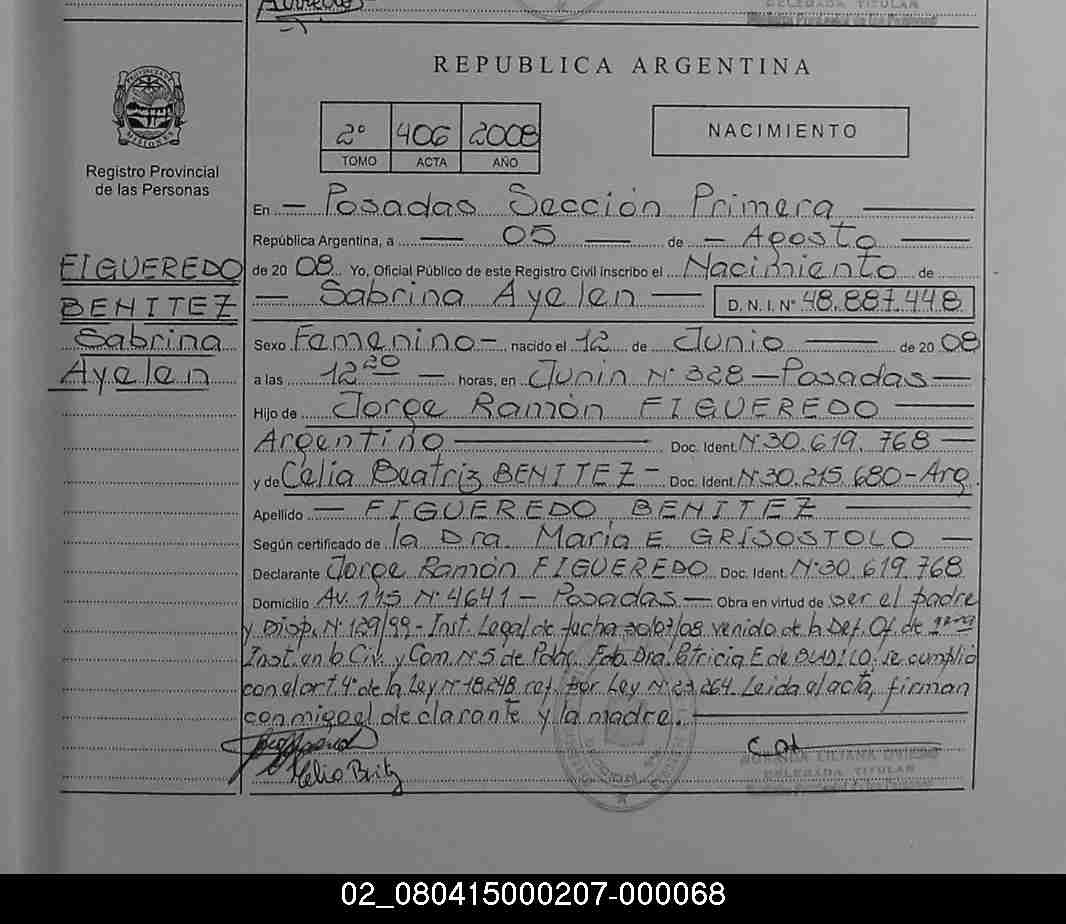 REPUBLICA ARGENTINA
2º 406 2008
TOMO ACTA AÑO
NACIMIENTO
Registro Provincial
de las Personas
FIGUEREDO
BENITEZ
Sabrina
Ayelen
En — Posadas Sección Primera —
República Argentina, a — 05 — de — Agosto —
de 20 08 Yo, Oficial Público de este Registro Civil inscribo el Nacimiento de
— Sabrina Ayelen — D. N. I. Nº 48.887.448
Sexo Femenino - nacido el 12 de Junio — de 20 08
a las 12 20 — horas, en Junin Nº 328 — Posadas —
Hijo de Jorge Ramón FIGUEREDO —
Argentino — Doc. Ident. Nº 30.619.768 —
y de Celia Beatriz BENITEZ - Doc. Ident. Nº 30.215.680 - Arg.
Apellido — FIGUEREDO BENITEZ —
Según certificado de la Dra. María E. GRISOSTOLO —
Declarante Jorge Ramón FIGUEREDO Doc. Ident. Nº 30.619.768
Domicilio Av. 115 Nº 4641 - Posadas — Obra en virtud de ser el padre
y Disp. Nº 129/99 - Inst. Legal de fecha 30/07/08 venido de la Def. Of. de
Inst. en lo Civ. y Com. Nº 5 de Pdas. Fdo. Dra. Patricia E. de se cumplió
con el art. 4º de la Ley Nº 18.248 ref. por Ley Nº 23.264. Leida el acta, firman
conmigo el declarante y la madre. —
DELEGADA TITULAR
02_080415000207-000068